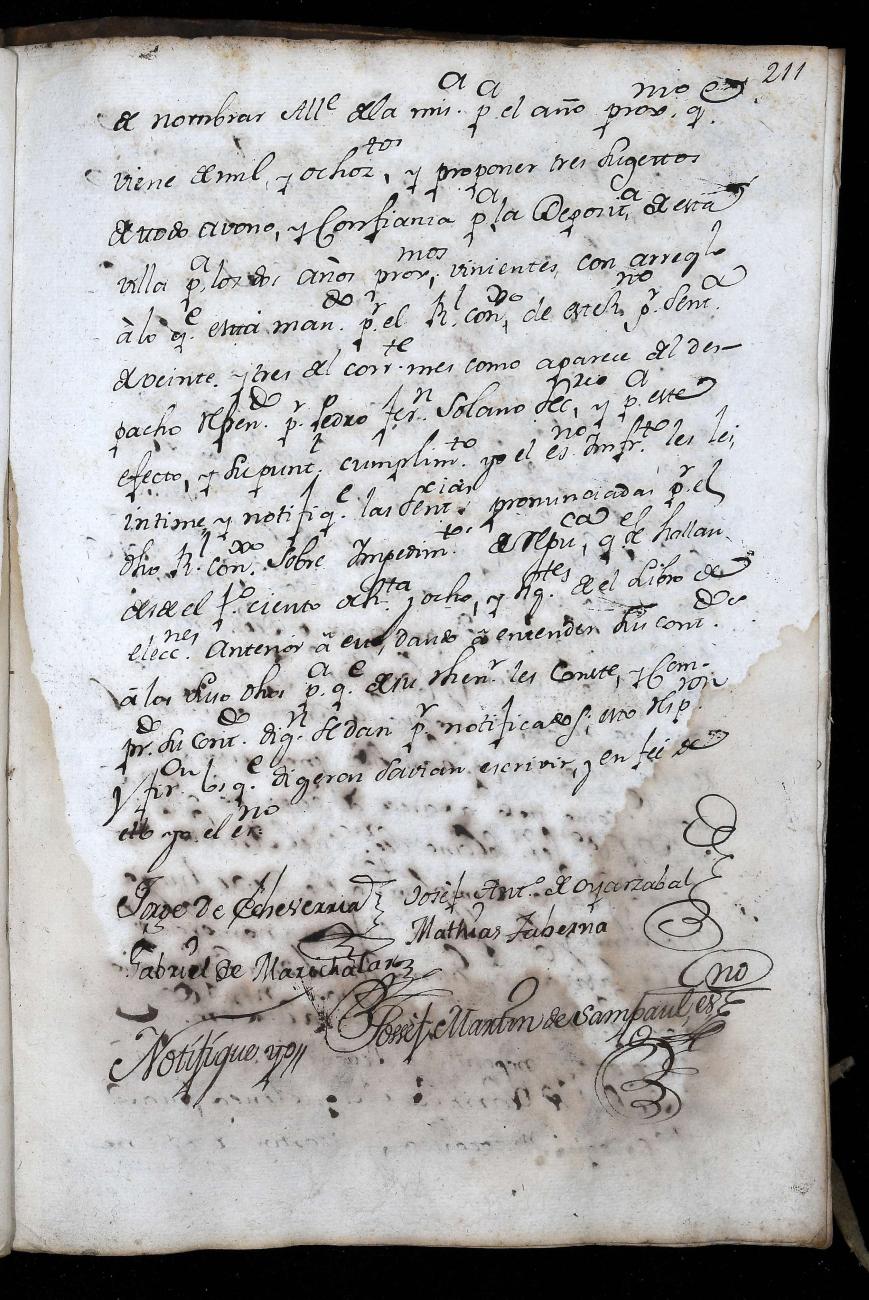 211
de nombrar Alle. de la mis.a p.a el año prox.mo q.e
viene de mil, y ochoz.tos, y proponer tres sugettos
de ttodo avono, y Confianza p.a la Deposit.a de esta
villa p.a los dos años prox.mos, vinientes, con arreglo
à lo q.e está man.do p.r el R.l con.do, de este R.no p.r Sent.a
de veinte, y tres del corr.te mes como aparece del des-
pacho refren.do p.r Pedro Fer.n Solano Sec.rio, y p.a este
efecto, y su punt.l cumplim.to yo el es.no Infr.to les lei,
intime, y notifiq.e las Sent.cias pronunciadas p.r el
dho R.l con.do sobre Impedim.tos de repu.ca, q.e se hallan
desde el f.o ciento och.ta y ocho, y sig.tes de el Libro de
elecc.nes anterior à este, dando à entender sus cont.dos
à los suso dhos p.a q.e de su thenr. les Conste, y Com-
pr.do su cont.do dig.n se dan p.r notificados, esto resp.ron
y fir.on los q.e digeron savian escrivir, y en fei de
ello yo el es.no
Jorge de Echeverria Josef Ant.o de oyarzabal
Mathias Taberna
Gabriel de Marichalar
Josef Martin de Sampaul, es.no
Notifique yo